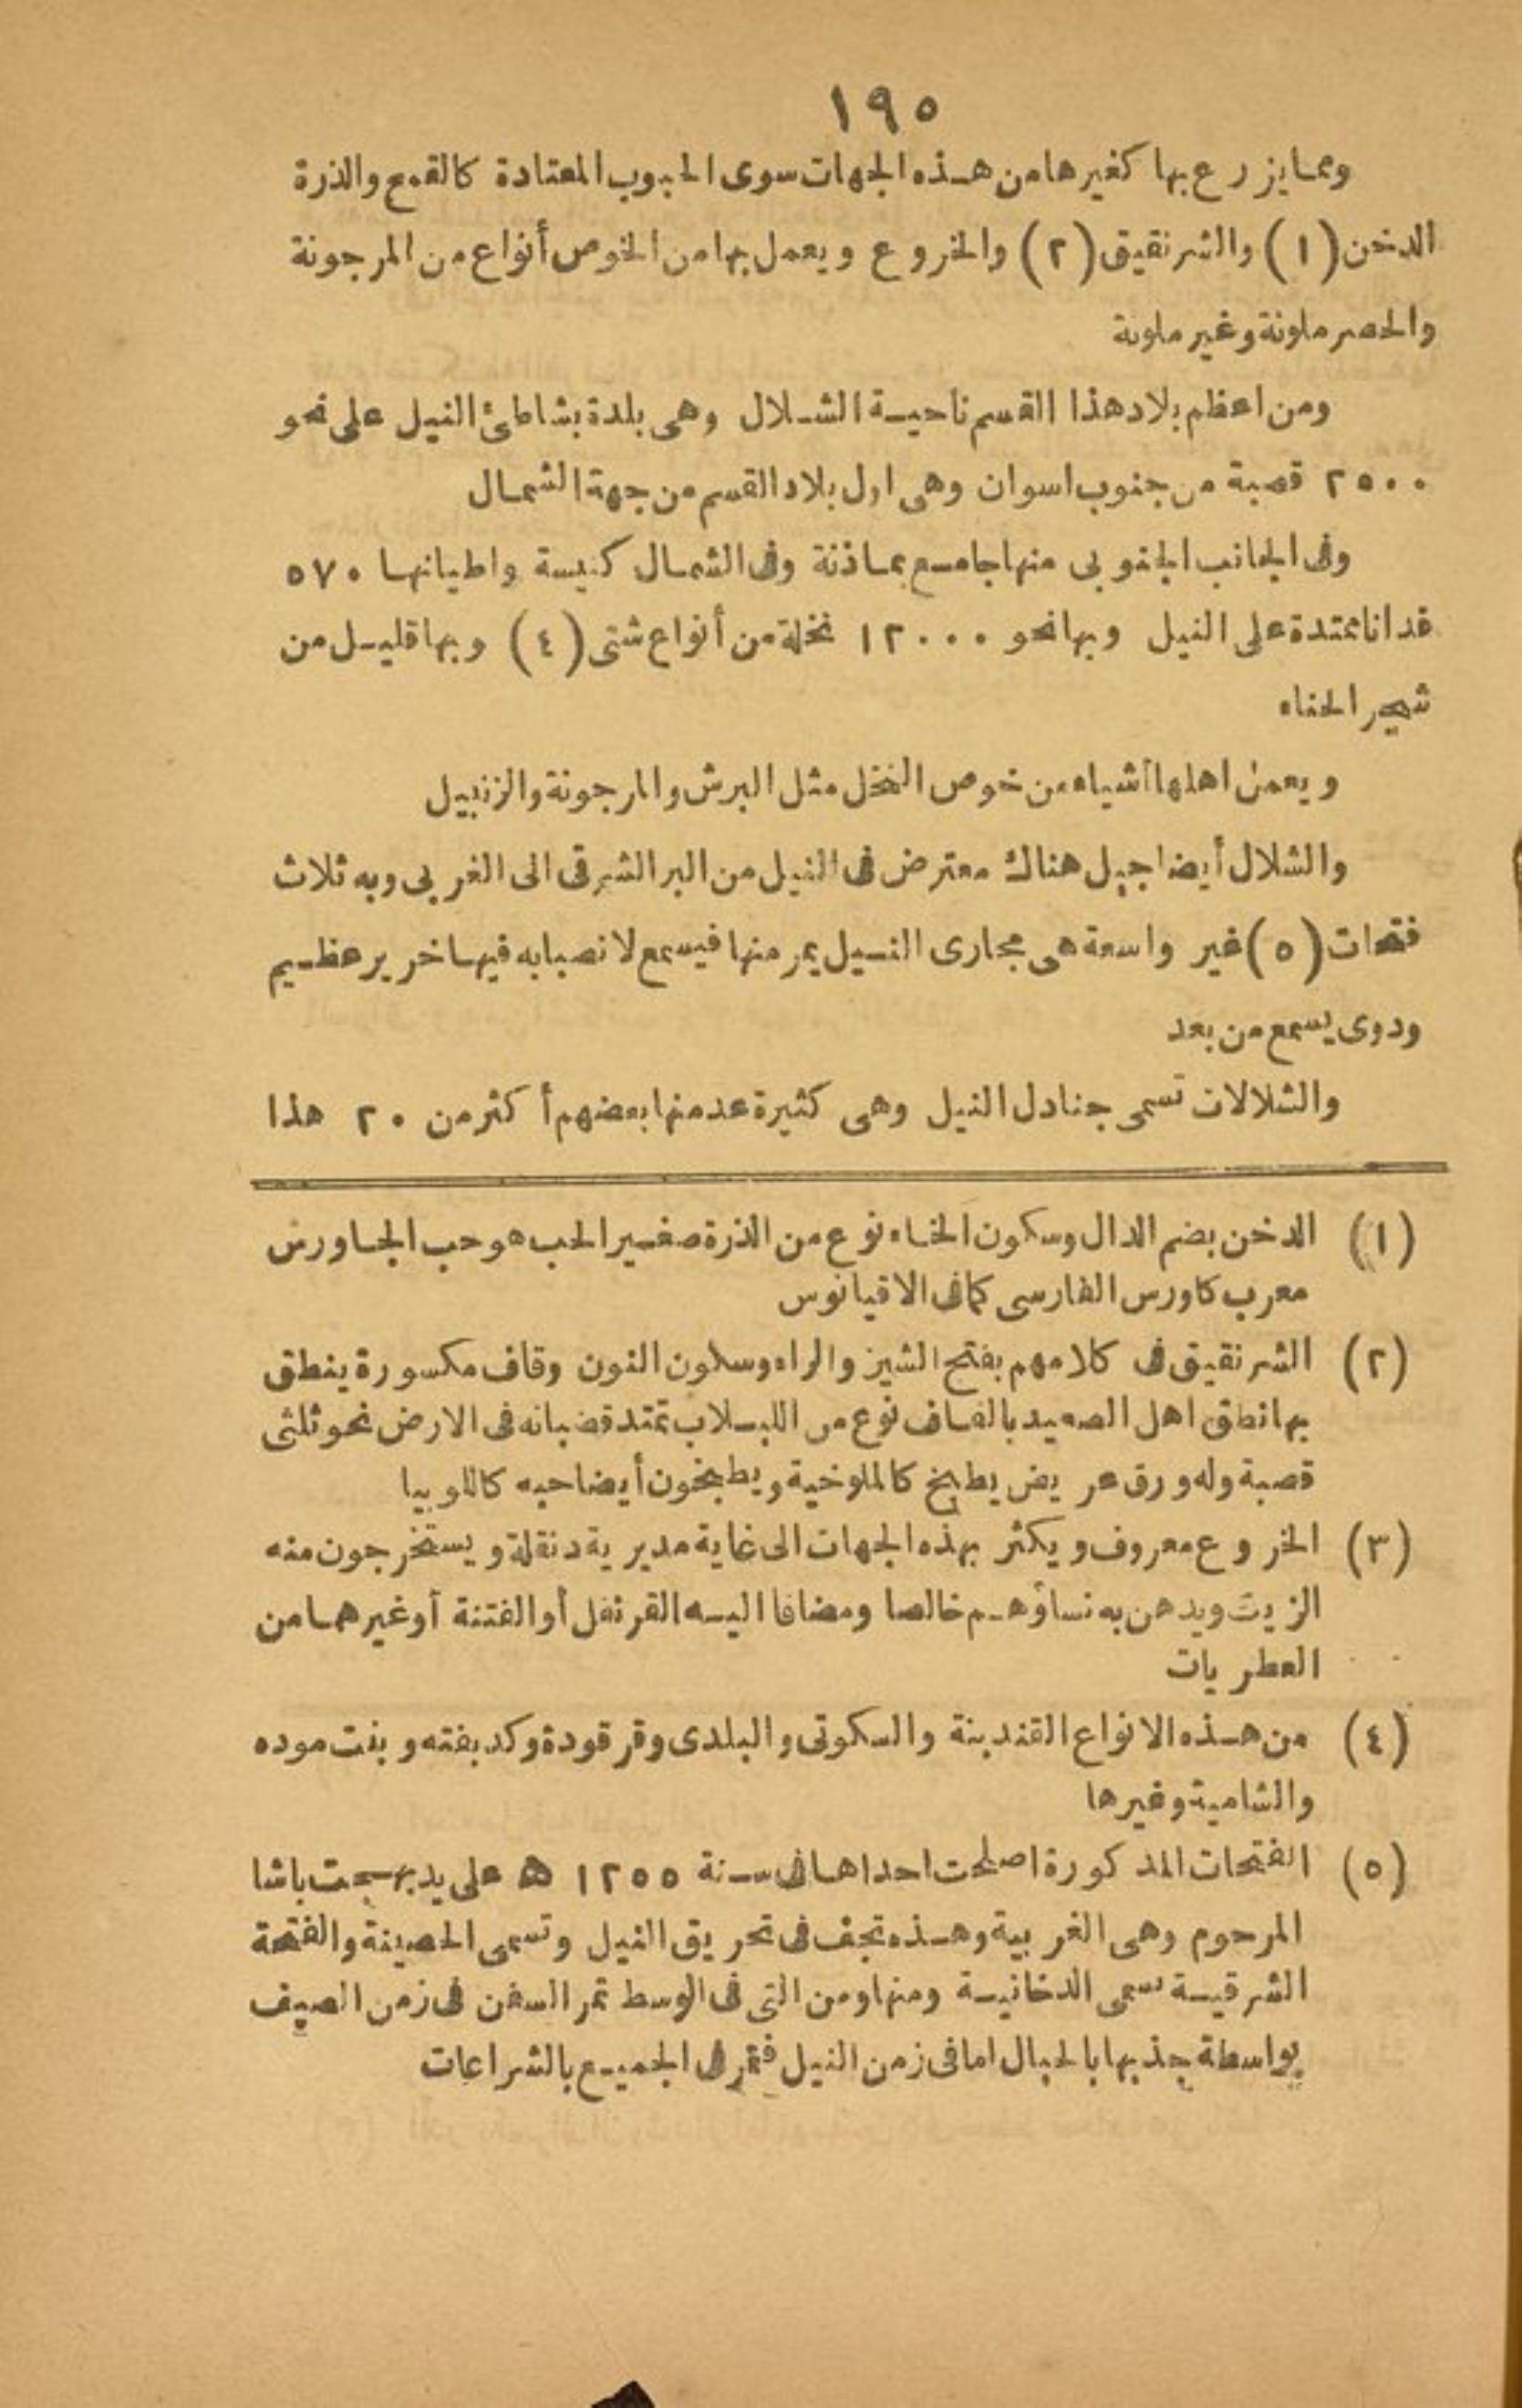 ١٩٥
ومما يزرع بها كغيرها من هذه الجهات سوى الحبوب المعتادة كالقمح والذرة
الدخن (١) والشرنقيق (٢) والخروع ويعمل بها من الخوص أنواع من المرجونة
والحصر ملونة وغير ملونة
ومن اعظم بلاد هذا القسم ناحية الشلال وهى بلدة بشاطئ النيل على نحو
٢٥٠٠ قصبة من جنوب اسوان وهى اول بلاد القسم من جهة الشمال
وفى الجانب الجنوبى منها جامع بمـاذنة وفى الشمال كنيسة واطيانها ٥٧٠
فدانا ممتدة على النيل وبها نحو ١٢٠٠٠ نخلة من أنواع شتى (٤) وبها قليل من
شجر الحناء
ويعمل اهلها أشياء من خوص النخل مثل البرش والمرجونة والزنبيل
والشلال أيضا جبل هناك معترض فى النيل من البر الشرقى الى الغربى وبه ثلاث
فتحات (٥) غير واسعة هى مجارى النيل يمر منها فيسمع لانصبابه فيها خرير عظيم
ودوى يسمع من بعد
والشلالات تسمى جنادل النيل وهى كثيرة عد منها بعضهم أكثر من ٢٠ هذا
(١) الدخن بضم الدال وسكون الخاء نوع من الذرة صغير الحب هو حب الجاورس
معرب كاورس الفارسى كما فى الاقيانوس
(٢) الشرنقيق فى كلامهم بفتح الشين والراء وسكون النون وقاف مكسورة ينطق
بها نطق اهل الصعيد بالقاف نوع من اللبلاب تمتد قضبانه فى الارض نحو ثلثى
قصبة وله ورق عريض يطبخ كالملوخية ويطبخون أيضا حبه كاللوبيا
(٣) الخروع معروف ويكثر بهذه الجهات الى غاية مديرية دنقلة ويستخرجون منه
الزيت ويدهن به نساؤهم خالصا ومضافا اليه القرنفل أو الفتنة أو غيرهما من
العطريات
(٤) من هذه الانواع القندينة والسكوتى والبلدى وقرقودة وكدبفته وبنت موده
والشامية وغيرها
(٥) الفتحات المذكورة اصلحت احداها فى سنة ١٢٥٥ ه على يد بهجت باشا
المرحوم وهى الغربية وهذه تجف فى تحريق النيل وتسمى الحصينة والفتحة
الشرقية تسمى الدخانية ومنها ومن التى فى الوسط تمر السفن فى زمن الصيف
بواسطة جذبها بالحبال اما فى زمن النيل فتمر فى الجميع بالشراعات